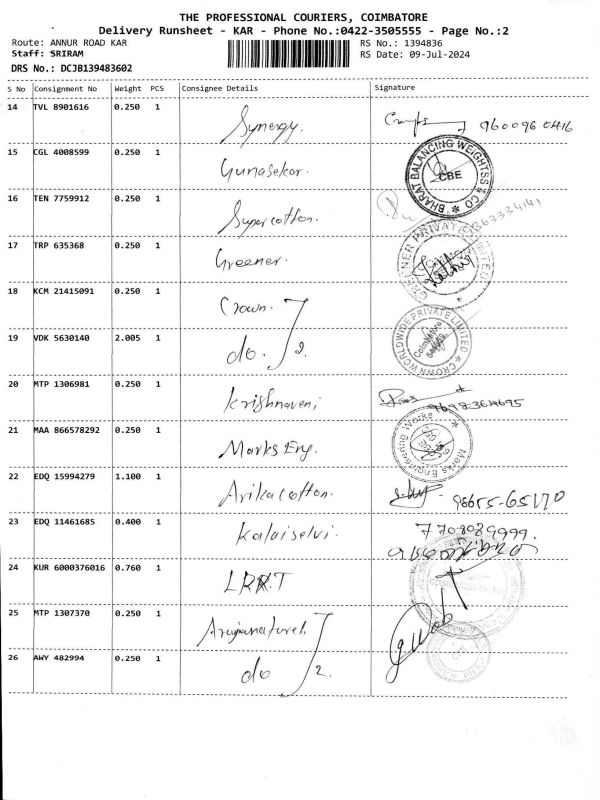 THE PROFESSIONAL COURIERS, COIMBATORE
Delivery Runsheet - KAR - Phone No.:0422-3505555 - Page No.:2
Route: ANNUR ROAD KAR RS No.: 1394836
Staff: SRIRAM RS Date: 09-Jul-2024
DRS No.: DCJB139483602
S No Consignment No Weight PCS Consignee Details Signature
14 TVL 8901616 0.250 1 Synergy. 960096 0416
15 CGL 4008599 0.250 1 Gunasekar. BHARAT BALANCING WEIGHTSS & CO CBE
16 TEN 7759912 0.250 1 Supercotton.
17 TRP 635368 0.250 1 Greener. GREENER PRIVATE LIMITED
18 KCM 21415091 0.250 1 Crown.
19 VDK 5630140 2.005 1 do. 2. CROWN WORLDWIDE PRIVATE LIMITED Coimbatore
20 MTP 1306981 0.250 1 Krishnaveni
21 MAA 866578292 0.250 1 Marks Eng. Marks Engineering Works
22 EDQ 15994279 1.100 1 Arikacotton. 98655-65170
23 EDQ 11461685 0.400 1 Kalaiselvi. 7708089999.
24 KUR 6000376016 0.760 1 LRRT
25 MTP 1307370 0.250 1
26 AWY 482994 0.250 1 do 2.